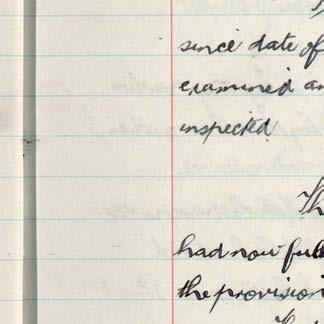 since date of
examined an
inspected
Th
had now full
the provision